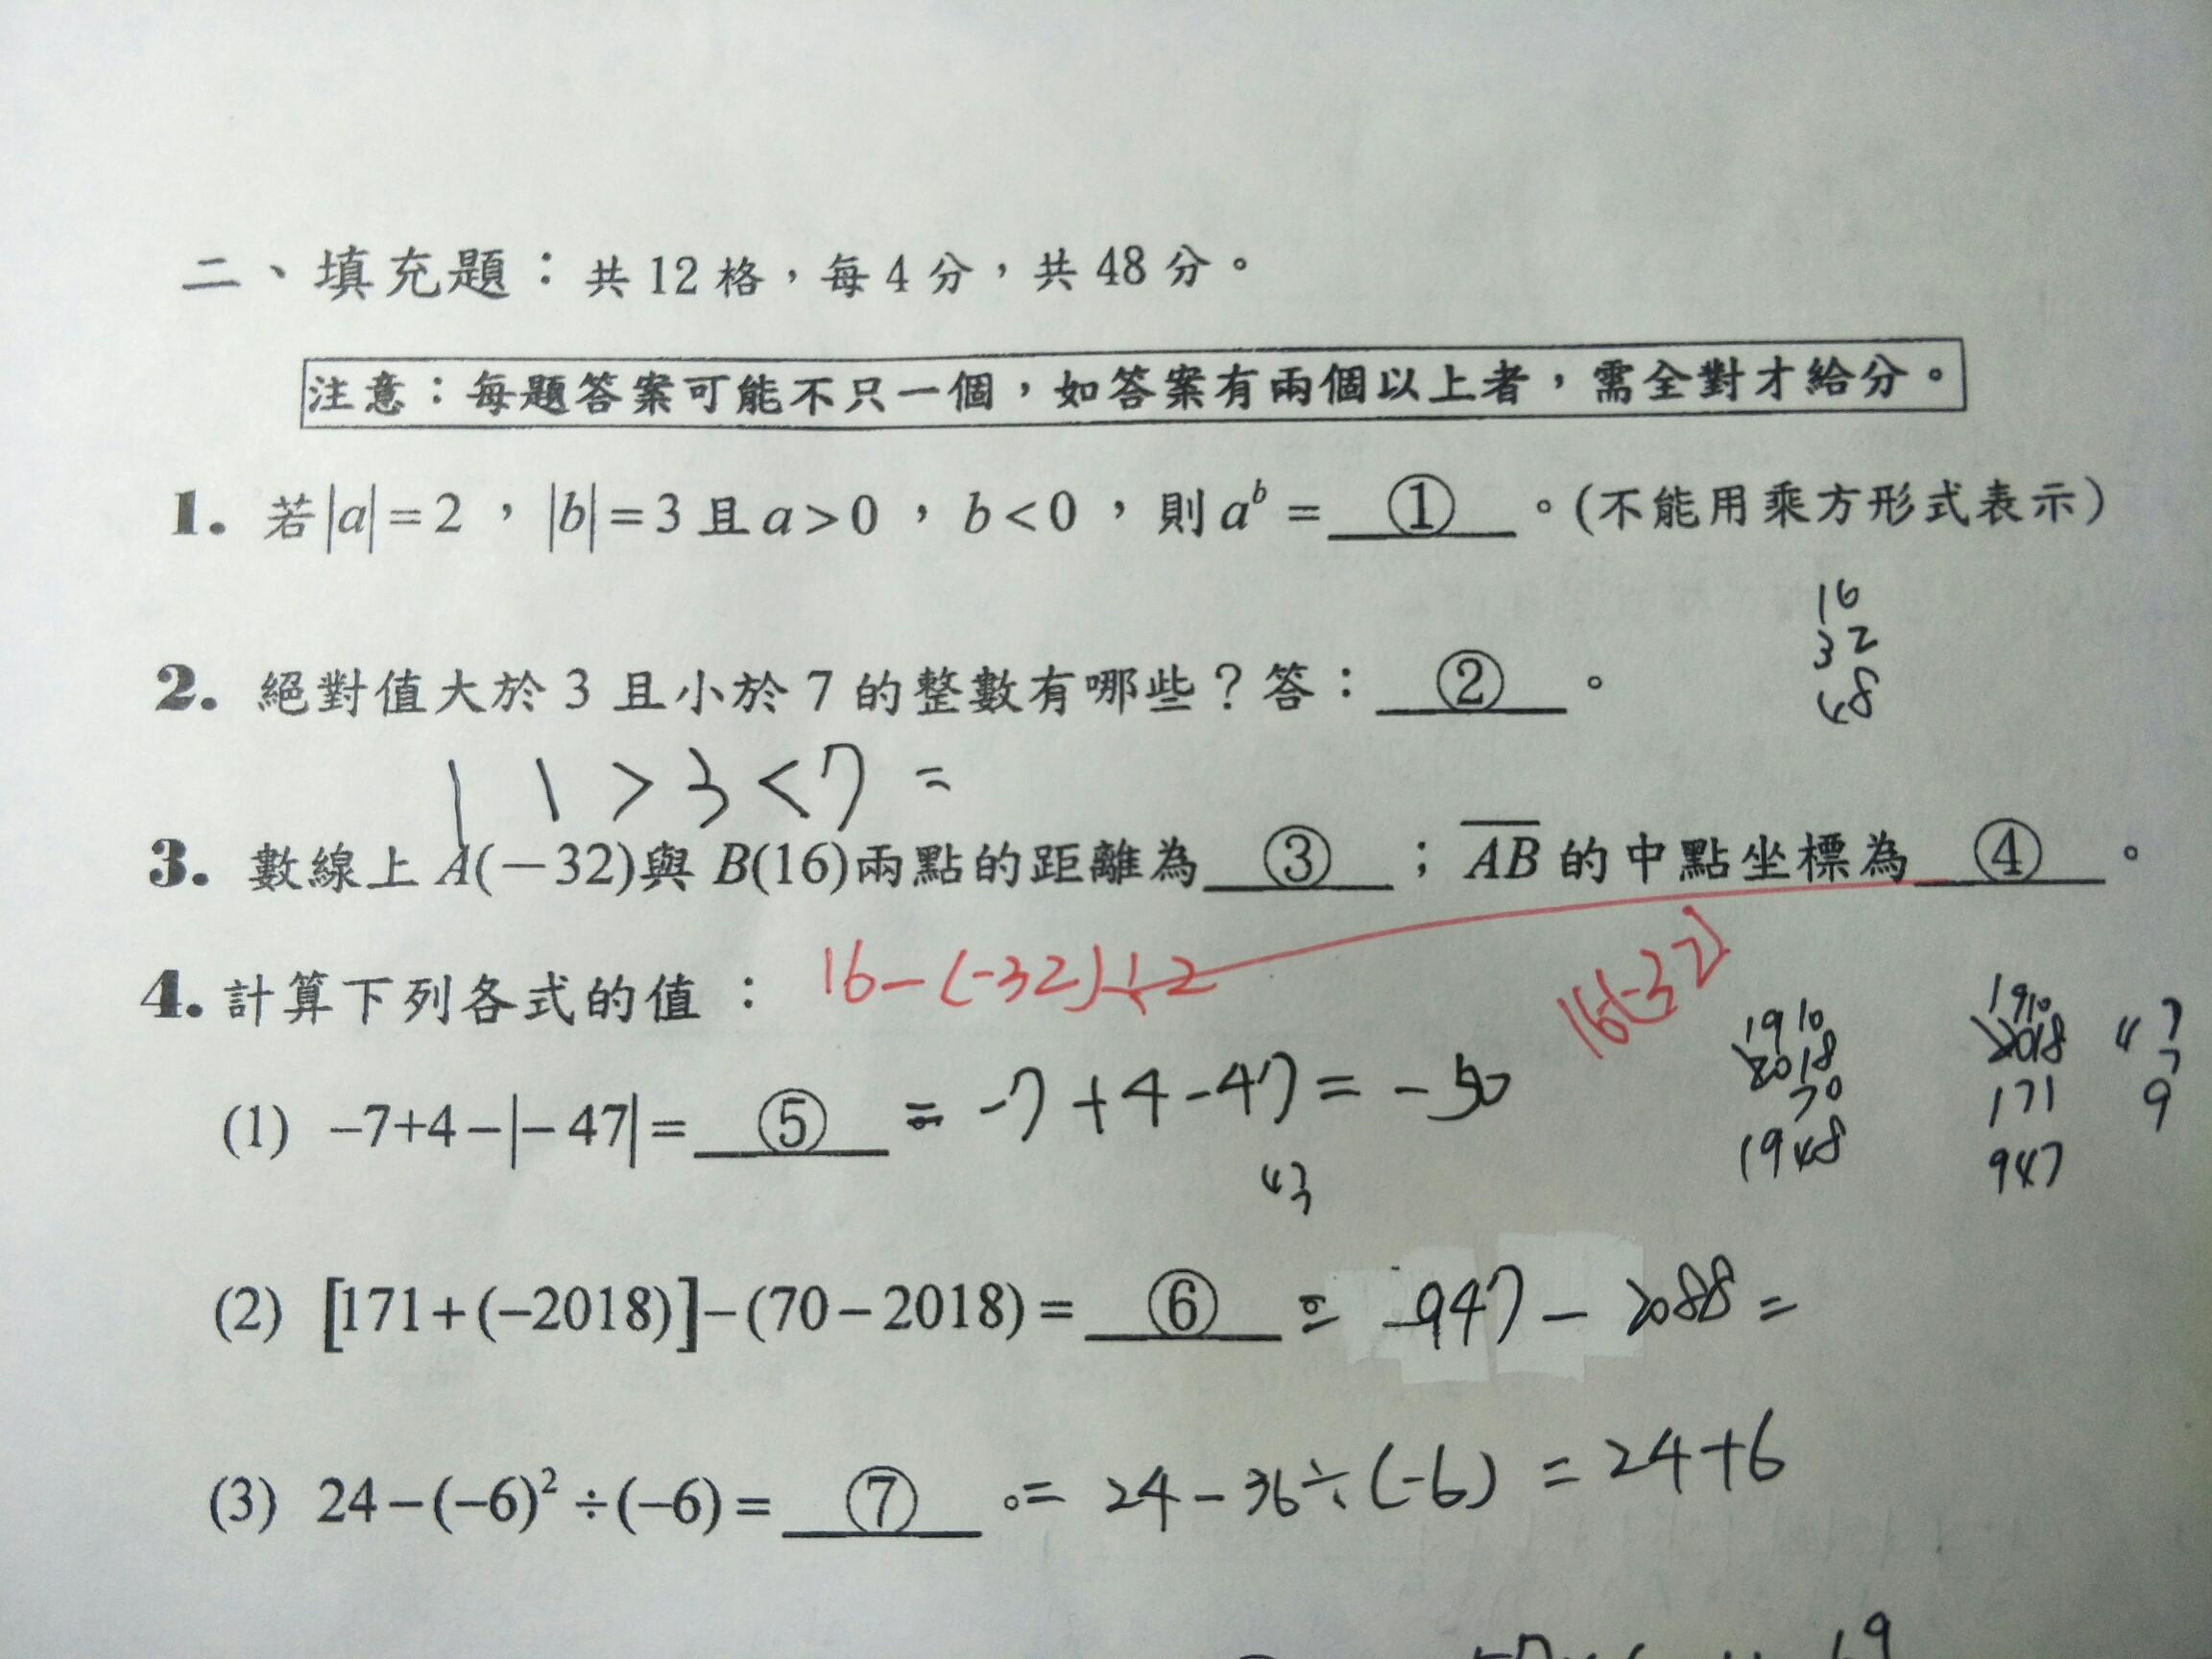 二、填充題：共 12 格，每 4 分，共 48 分。
注意：每題答案可能不只一個，如答案有兩個以上者，需全對才給分。
1. 若|a|=2，|b|=3且a>0，b<0，則aᵇ=①。(不能用乘方形式表示)
16
32
48
2. 絕對值大於 3 且小於 7 的整數有哪些？答：②。
| | > 3 < 7 =
3. 數線上 A(−32)與 B(16)兩點的距離為③；A̅B̅ 的中點坐標為④。
16-(-32)÷2
16(-32)
4. 計算下列各式的值：
1910
2018
70
1948
1910
2018
171
947
(1) −7+4−|−47|=⑤ = -7+4-47=-50
43
(2) [171+(−2018)]−(70−2018)=⑥。= -947-2088=
(3) 24−(−6)²÷(−6)=⑦。= 24-36÷(-6) = 24+6